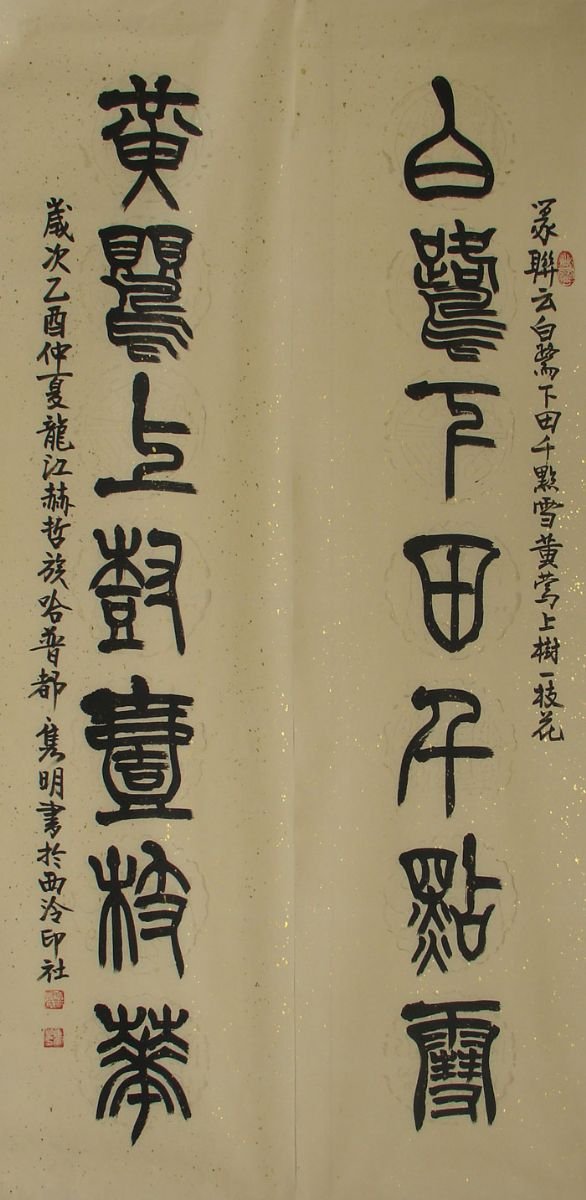 篆聯云白鷺下田千點雪黄鶯上樹一枝花
白鷺下田千點雪
黄鸎上樹壹枝華
歲次乙酉仲夏龍江赫哲族哈普都雋明書於西泠印社